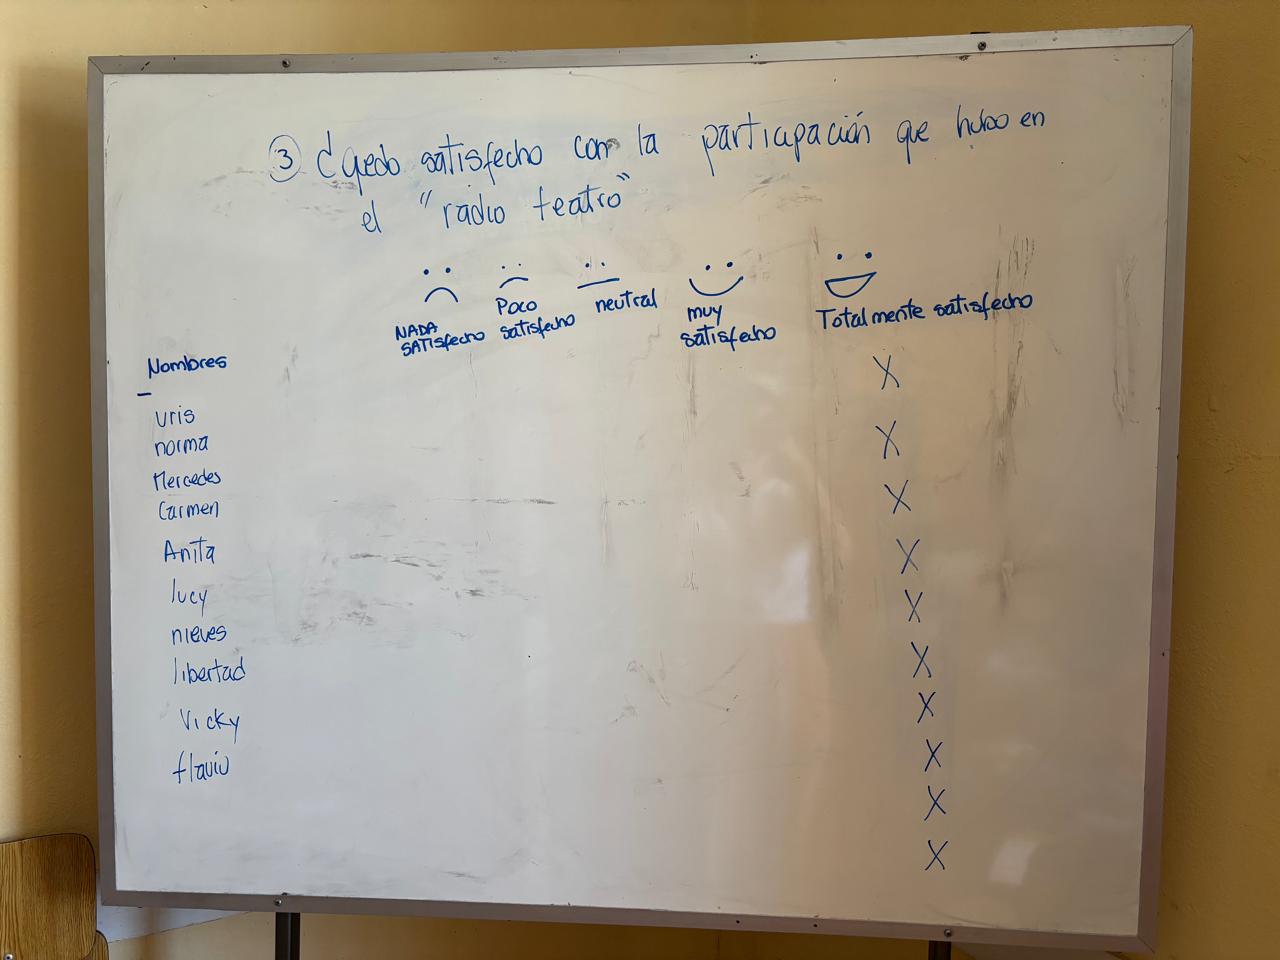 ③ ¿quedo satisfecho con la participación que hubo en
el "radio teatro"
NADA SATISfecho
Poco satisfecho
neutral
muy satisfecho
Totalmente satisfecho
Nombres
X
uris
norma
X
Mercedes
Carmen
X
Anita
X
lucy
X
nieves
libertad
X
Vicky
X
flaviu
X
X
X